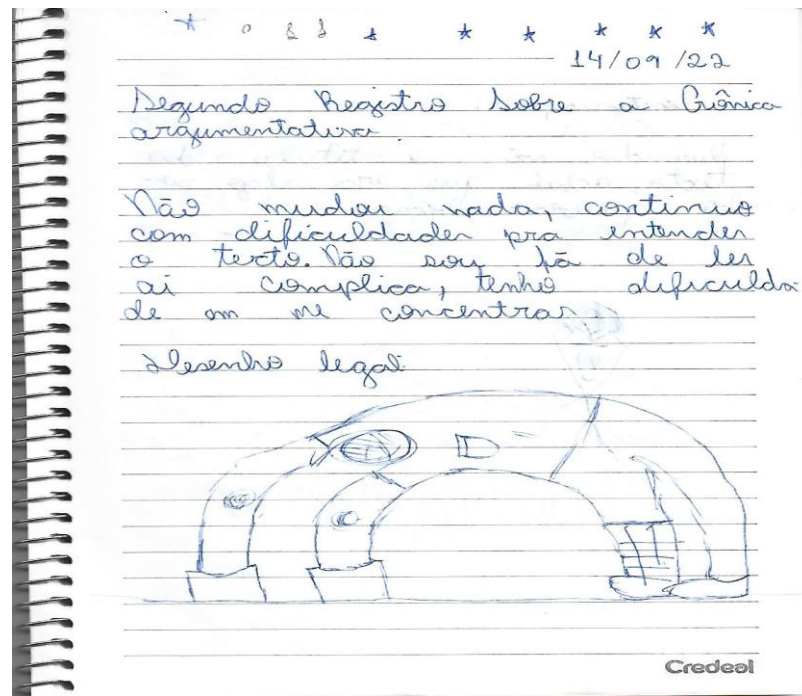 14/09/22
Segundo Registro Sobre a Crônica
argumentativa.
Não mudou nada, continuo
com dificuldades pra entender
o texto. Não sou fã de ler
ai complica, tenho dificulda
de em me concentrar
Desenho legal
Credeal